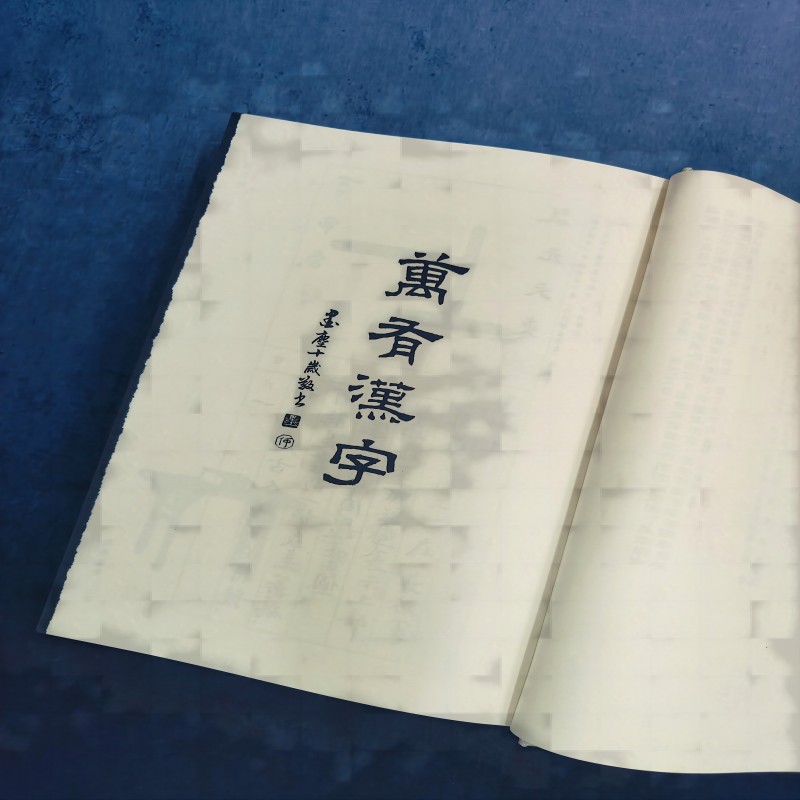 萬有漢字
墨塵十歲敬書